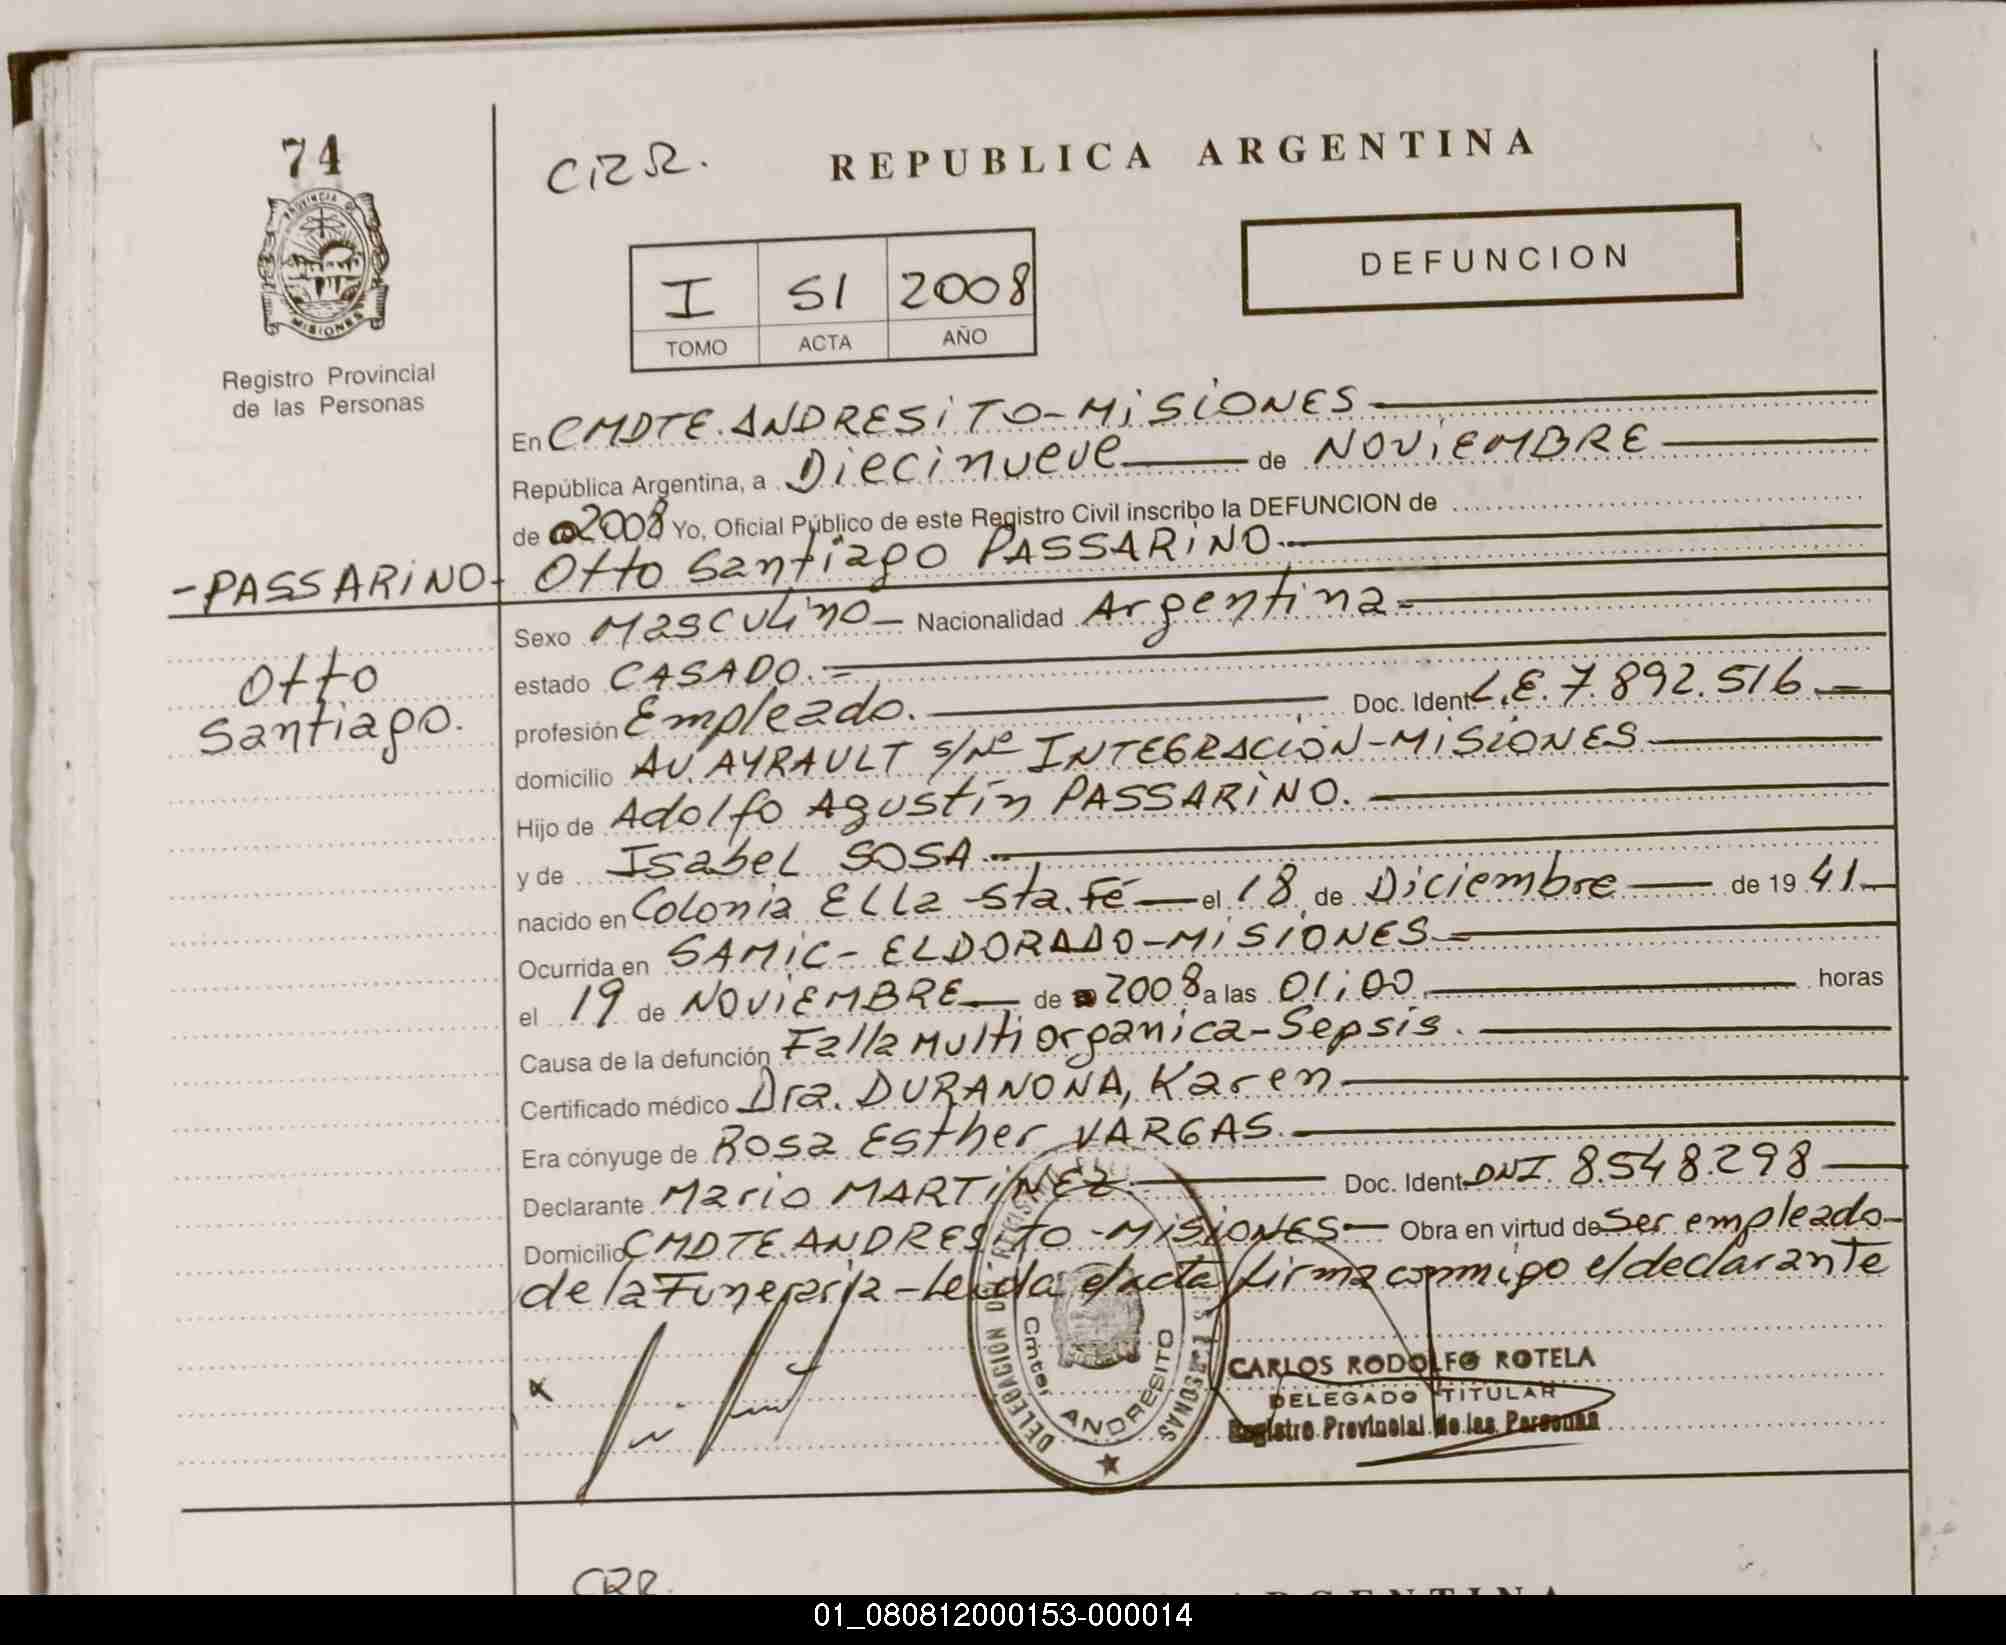 74
CRR.
REPUBLICA ARGENTINA
PROVINCIA DE
MISIONES
Registro Provincial
de las Personas
DEFUNCION
I 51 2008
TOMO ACTA AÑO
En CMDTE. ANDRESITO-MISIONES
República Argentina, a Diecinueve de NOVIEMBRE
de 2008 Yo, Oficial Público de este Registro Civil inscribo la DEFUNCION de
-PASSARINO- Otto Santiago PASSARINO.
Otto
Santiago.
Sexo Masculino Nacionalidad Argentina
estado CASADO.
profesión Empleado. Doc. Ident. L.E. 7.892.516
domicilio AV. AYRAULT S/Nº INTEGRACIÓN-MISIONES
Hijo de Adolfo Agustín PASSARINO.
y de Isabel SOSA
nacido en Colonia Ella - Sta. Fé el 18 de Diciembre de 19 41
Ocurrida en SAMIC- ELDORADO-MISIONES
el 19 de NOVIEMBRE de 2008 a las 01:00 horas
Causa de la defunción Falla Multiorganica-Sepsis.
Certificado médico Dra. DURANONA, Karen
Era cónyuge de Rosa Esther VARGAS.
Declarante Mario MARTINEZ Doc. Ident. DNI. 8.548.298
Domicilio CMDTE ANDRESITO -MISIONES Obra en virtud de Ser empleado
de la Funeraria - Leida el acta firma conmigo el declarante
DELEGACION
Cmter ANDRESITO
CARLOS RODOLFO ROTELA
DELEGADO TITULAR
Registro Provincial de las Personas
CRR.
ARGENTINA
01_080812000153-000014